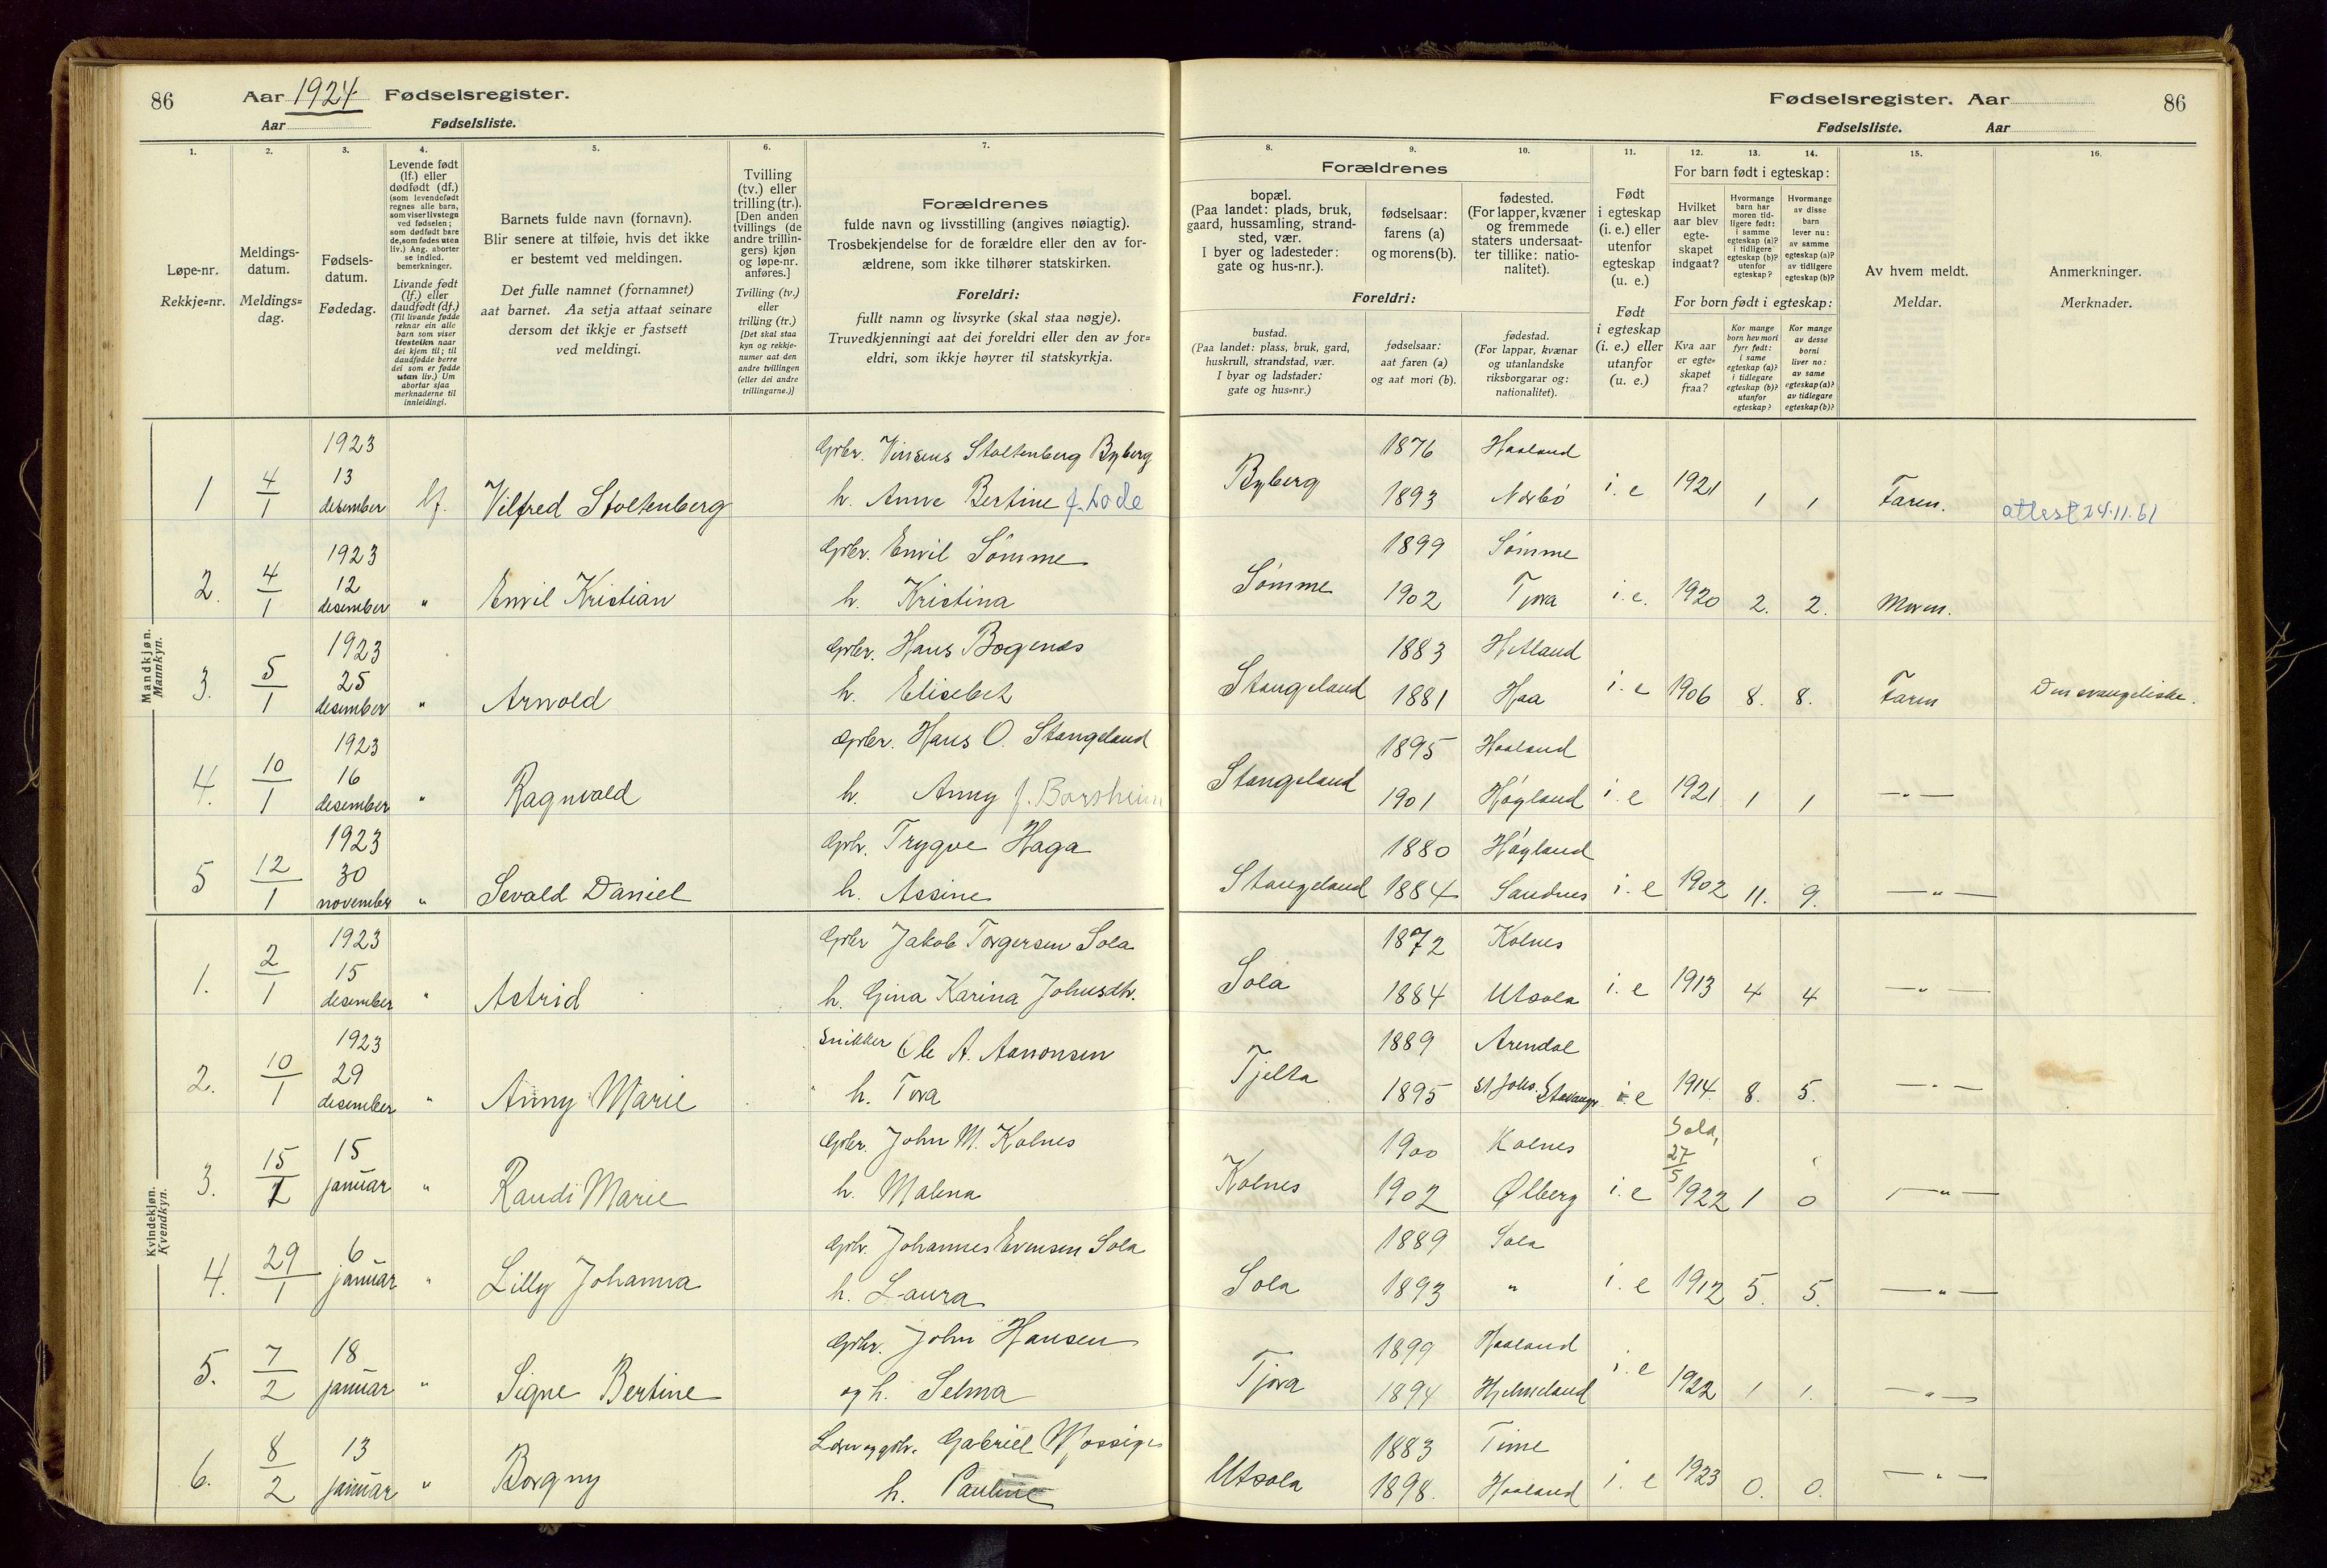 86 Aar 1924. Fødselsregister.
Aar Fødselsliste.
Fødselsregister. Aar 86
Fødselsliste. Aar
1. 2. 3. 4. 5. 6. 7.
Løpe-nr.
Rekkje=nr.
Meldings-
datum.
Meldings=
dag.
Fødsels-
datum.
Fødedag.
Levende født
(lf.) eller
dødfødt (df.)
(som levendefødt
regnes alle barn,
som viser livstegn
ved fødselen;
som dødfødt bare
de, som fødes uten
liv.) Ang. aborter
se indled.
bemerkninger.
Livande født
(lf.) eller
daudfødt (df.)
(Til livande fødde
reknar ein alle
barn som viser
livsteikn naar
dei kjem til; til
daudfødde berre
dei som er fødde
utan liv.) Um
abortar sjaa
merknaderne til
innleidingi.
Barnets fulde navn (fornavn).
Blir senere at tilføie, hvis det ikke
er bestemt ved meldingen.
Det fulle namnet (fornamnet)
aat barnet. Aa setja attaat seinare
dersom det ikkje er fastsett
ved meldingi.
Tvilling
(tv.) eller
trilling (tr.).
[Den anden
tvillings (de
andre trillin-
gers) kjøn
og løpe-nr.
anføres.]
Tvilling (tv.)
eller
trilling (tr.)
[Det skal staa
kyn og rekkje-
numer aat den
andre tvillingen
(eller dei andre
trillingarne.)]
Forældrenes
fulde navn og livsstilling (angives nøiagtig).
Trosbekjendelse for de forældre eller den av for-
ældrene, som ikke tilhører statskirken.
Foreldri:
fullt namn og livsyrke (skal staa nøgje).
Truvedkjenningi aat dei foreldri eller den av for=
eldri, som ikkje høyrer til statskyrkja.
8. 9. 10. 11. 12. 13. 14. 15. 16.
Forældrenes
bopæl.
(Paa landet: plads, bruk,
gaard, hussamling, strand-
sted, vær.
I byer og ladesteder:
gate og hus-nr.).
fødselsaar:
farens (a)
og morens (b).
fødested.
(For lapper, kvæner
og fremmede
staters undersaat-
ter tillike: natio-
nalitet).
Foreldri:
bustad.
(Paa landet: plass, bruk, gard,
huskrull, strandstad, vær.
I byar og ladstader:
gate og hus=nr.)
fødselsaar:
aat faren (a)
og aat mori (b).
fødestad.
(For lappar, kvænar
og utanlandske
riksborgarar og:
nationalitet).
Født
i egteskap
(i. e.) eller
utenfor
egteskap
(u. e.)
Født
i egteskap
(i. e.) eller
utanfor
(u. e.)
For barn født i egteskap:
Hvilket
aar blev
egte-
skapet
indgaat?
Hvormange
barn har
moren tid-
ligere født:
i samme
egteskap (a)?
i tidligere
egteskap (b)?
utenfor
egteskap?
Hvormange
av disse
barn
lever nu:
av samme
egteskap (a)?
av tidligere
egteskap (b)?
For born født i egteskap:
Kva aar
er egte=
skapet
fraa?
Kor mange
born hev mori
fyrr født:
i same
egteskap (a)?
i tidlegare
egteskap (b)?
utanfor
egteskap?
Kor mange
av desse
borni
liver no:
av same
egteskap (a)?
av tidlegare
egteskap (b)?
Av hvem meldt.
Meldar.
Anmerkninger.
Merknader.
Mandkjøn.
Mannkyn.
1923 Gbr. Vinsens Stoltenberg Byberg 1876 Haaland
1 4/1 13 desember lf. Vilfred Stoltenberg h. Anne Bertine f. Lode Byberg 1893 Nærbø i. e 1921 1 1 Faren. attest 24.11.61
1923 Gbr. Emil Sømme 1899 Sømme
2. 4/1 12 desember " Emil Kristian h. Kristina Sømme 1902 Tjora i. e. 1920 2. 2. Moren.
1923 Gbr. Hans Bogenes 1883 Hetland
3. 5/1 25 desember " Arnold h. Elisebet Stangeland 1881 Haa i. e 1906 8. 8. Faren Den evangeliske.
1923 Gbr. Hans O. Stangeland 1895 Haaland
4. 10/1 16 desember " Ragnvald h. Anny f. Borsheim Stangeland 1901 Høyland i. e 1921 1 1 —"—
1923 Gbr. Trygve Haga 1880 Høyland
5 12/1 30 november " Sevald Daniel h. Assine Stangeland 1884 Sandnes i. e 1902 11. 9. —"—
Kvindekjøn.
Kvendkyn.
1923 Gbr Jakob Torgersen Sola 1872 Kolnes
1. 2/1 15 desember " Astrid h. Gina Karina Johnsdtr. Sola 1884 Utsola i. e 1913 4 4 —"—
1923 Snikker Ole A. Aanonsen 1889 Arendal
2. 10/1 29 desember " Anny Marie h. Tora Tjelta 1895 St Joh. Stavanger i. e 1914 8. 5. —"—
Gbr. John M. Kolnes 1900 Kolnes Sola, 27/5
3. 15/1 15 januar " Randi Marie h. Malena Kolnes 1902 Ølberg i. e 1922 1 0 —"—
Gbr. Johannes Evensen Sola 1889 Sola
4. 29/1 6 januar " Lilly Johanna h. Laura Sola 1893 " i. e 1912 5. 5. —"—
Gbr. John Hansen 1899 Haaland
5. 7/2 18 januar " Signe Bertine og h. Selma Tjora 1894 Hjelmeland i. e 1922 1 1. —"—
Lærer og gbr. Gabriel Mossige 1883 Time
6. 8/2 13 januar " Borgny h. Pauline Utsola 1898. Haaland i. e 1923 0. 0. —"—